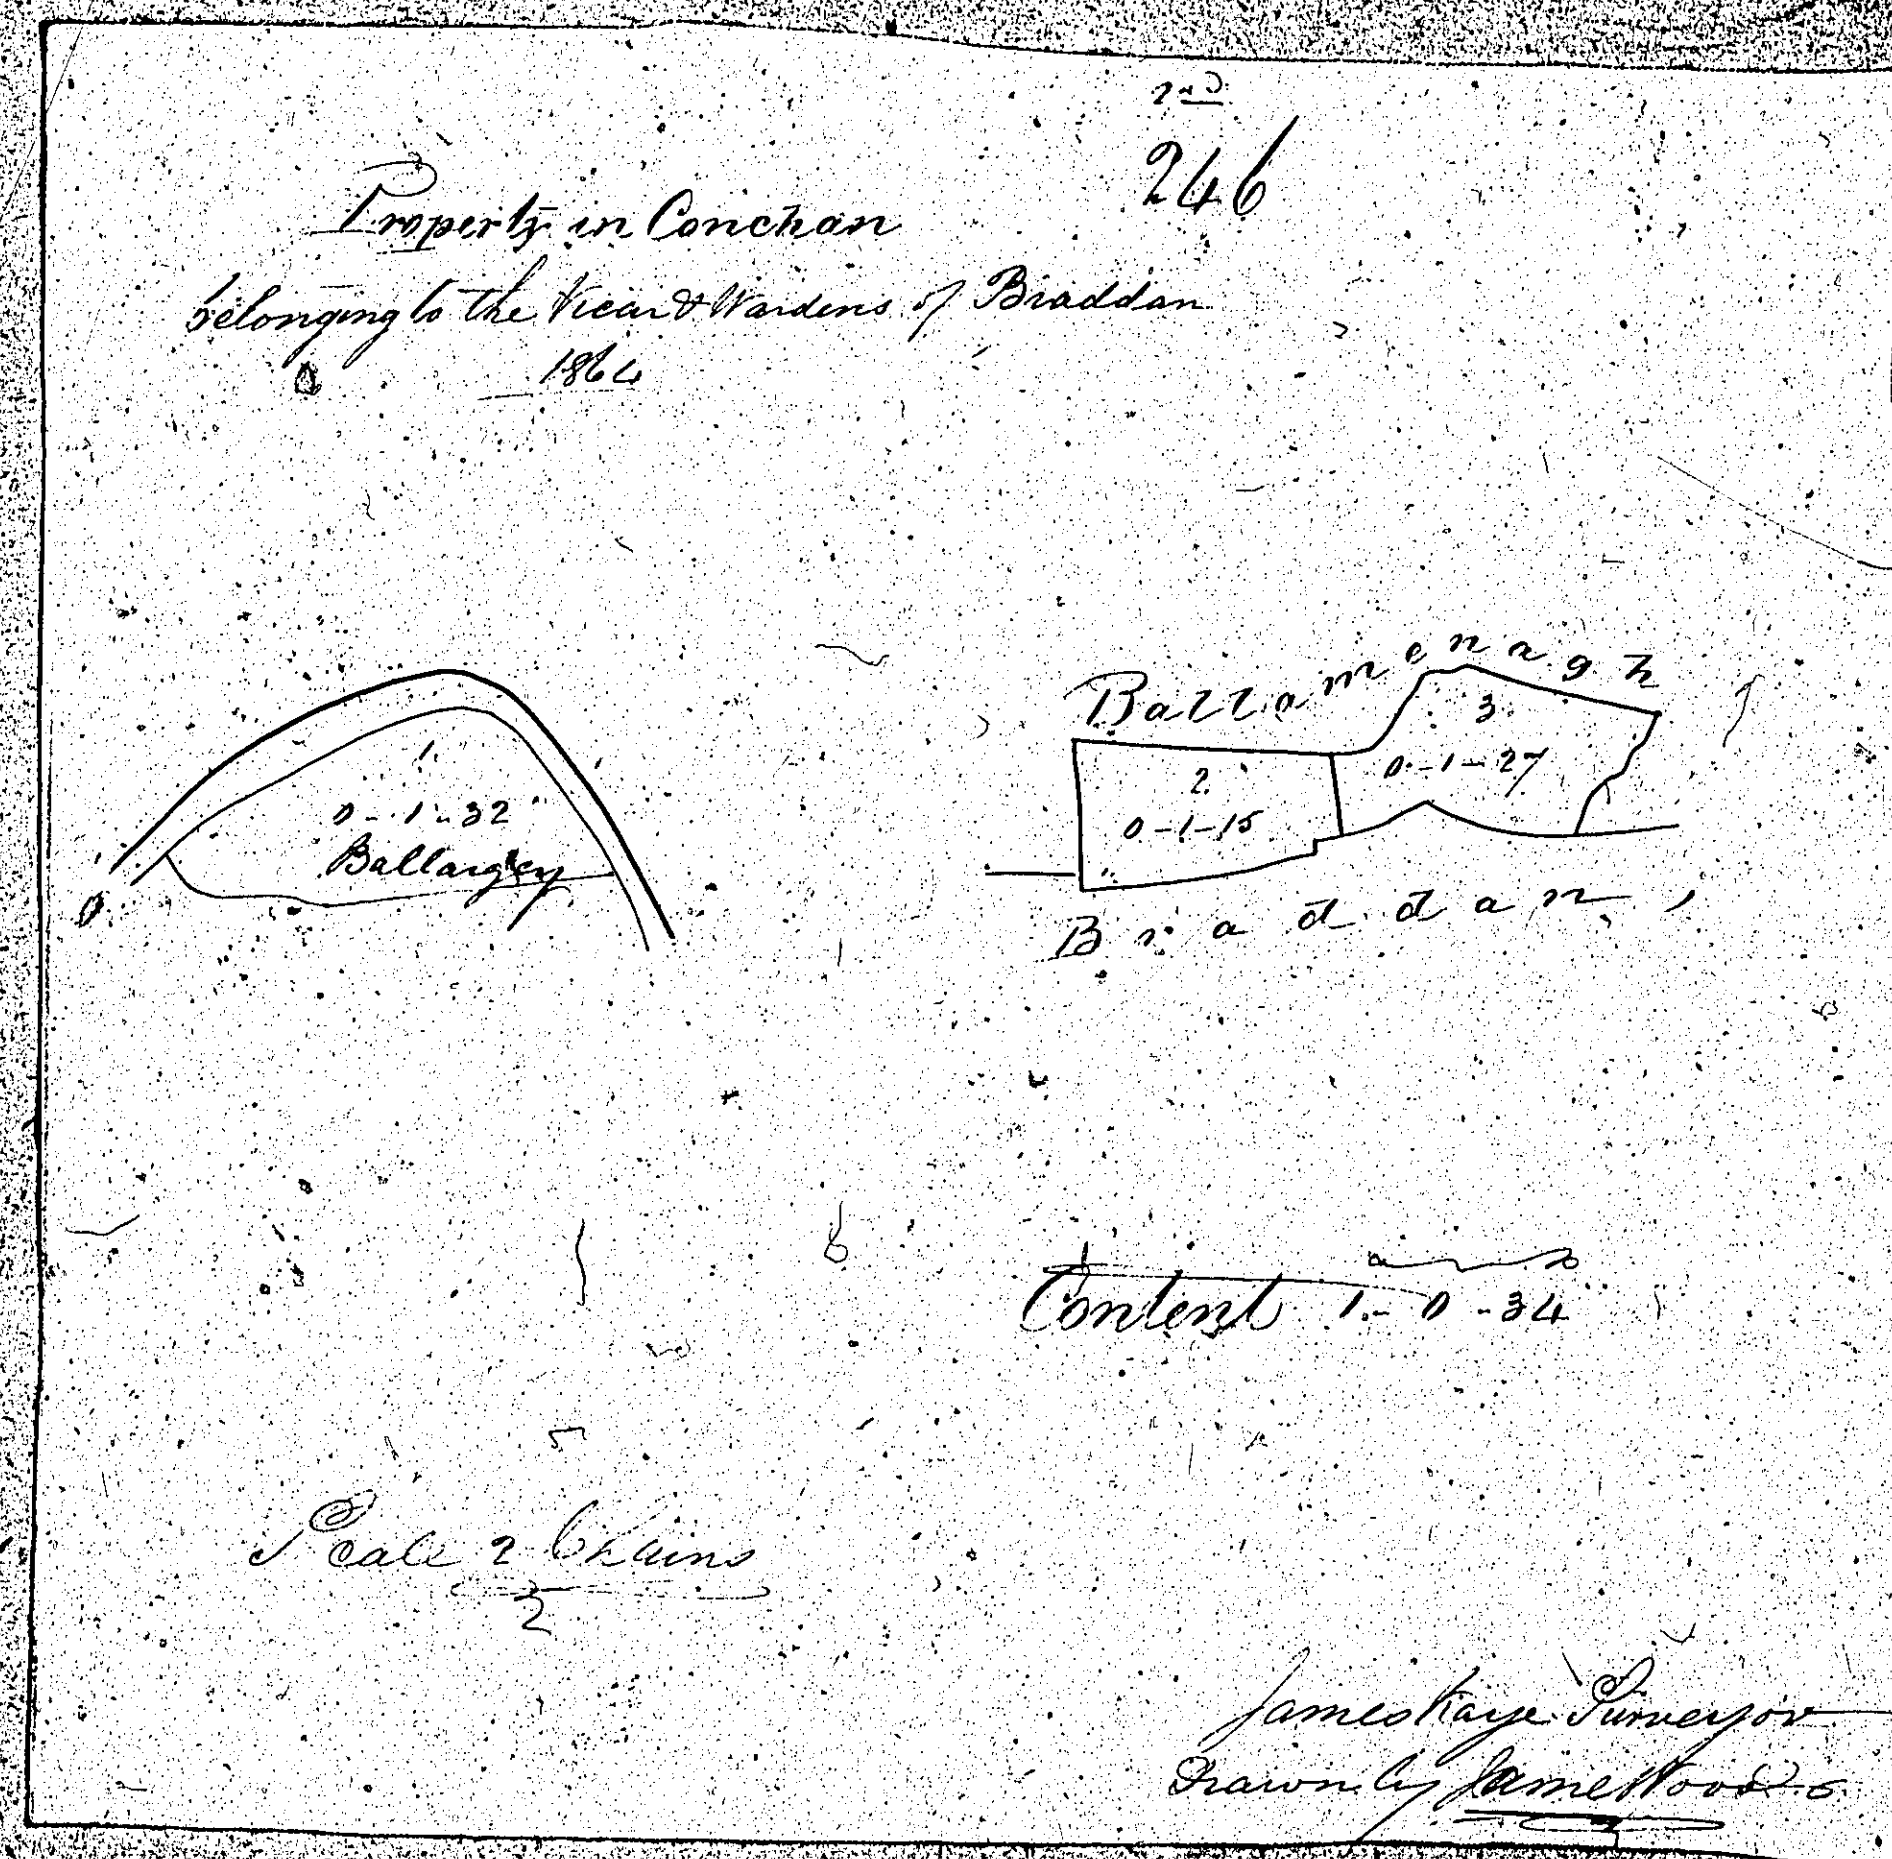 2nd
246
Property in Conchan
belonging to the Vicar & Wardens of Braddan
1864
1.
0-1-32
Ballargey
Ballamenagh
2.
0-1-15
3.
0-1-27
Braddan
a r p
Content 1-0-34
Scale 2 Chains
James Kaye Surveyor
Drawn by James Wood